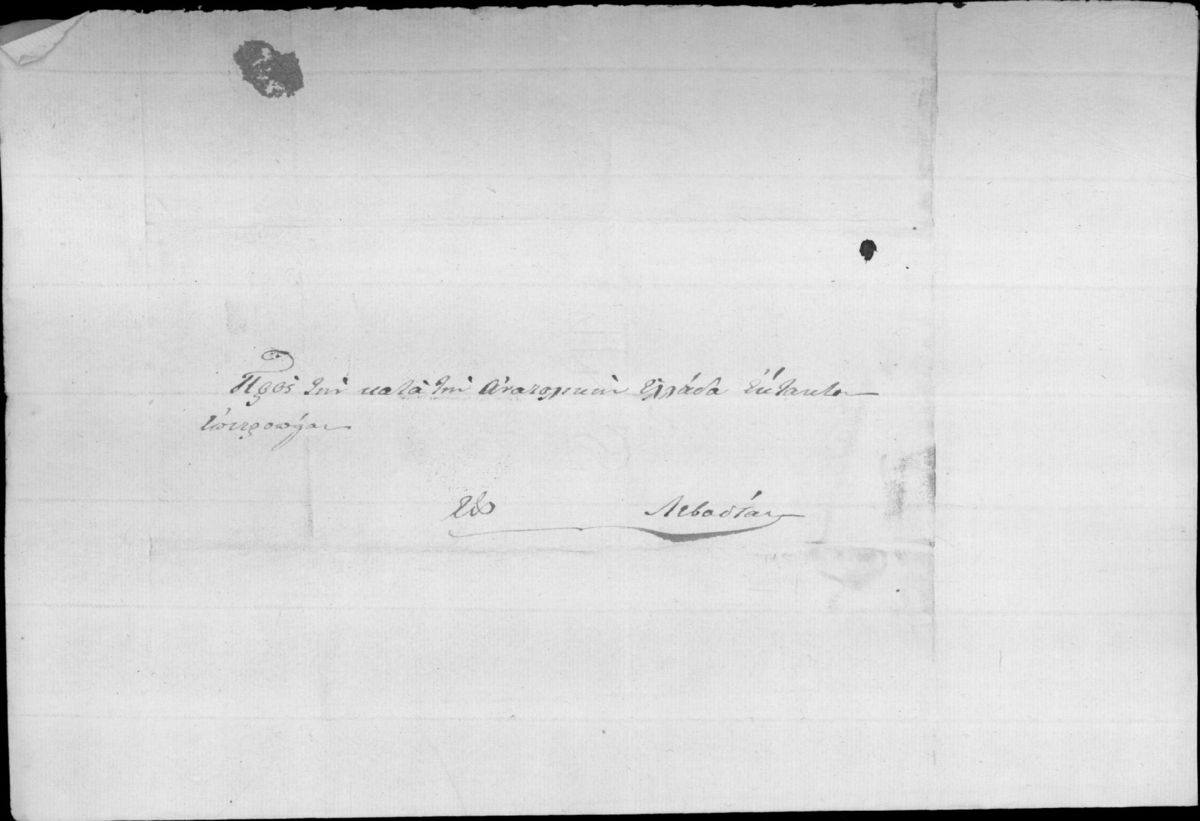 Πρὸς τὴν κατὰ τὴν Ἀνατολικὴν Ἑλλάδα ἔκτακτον
ἐπιτροπήν
Εἰς Λεβαδίαν